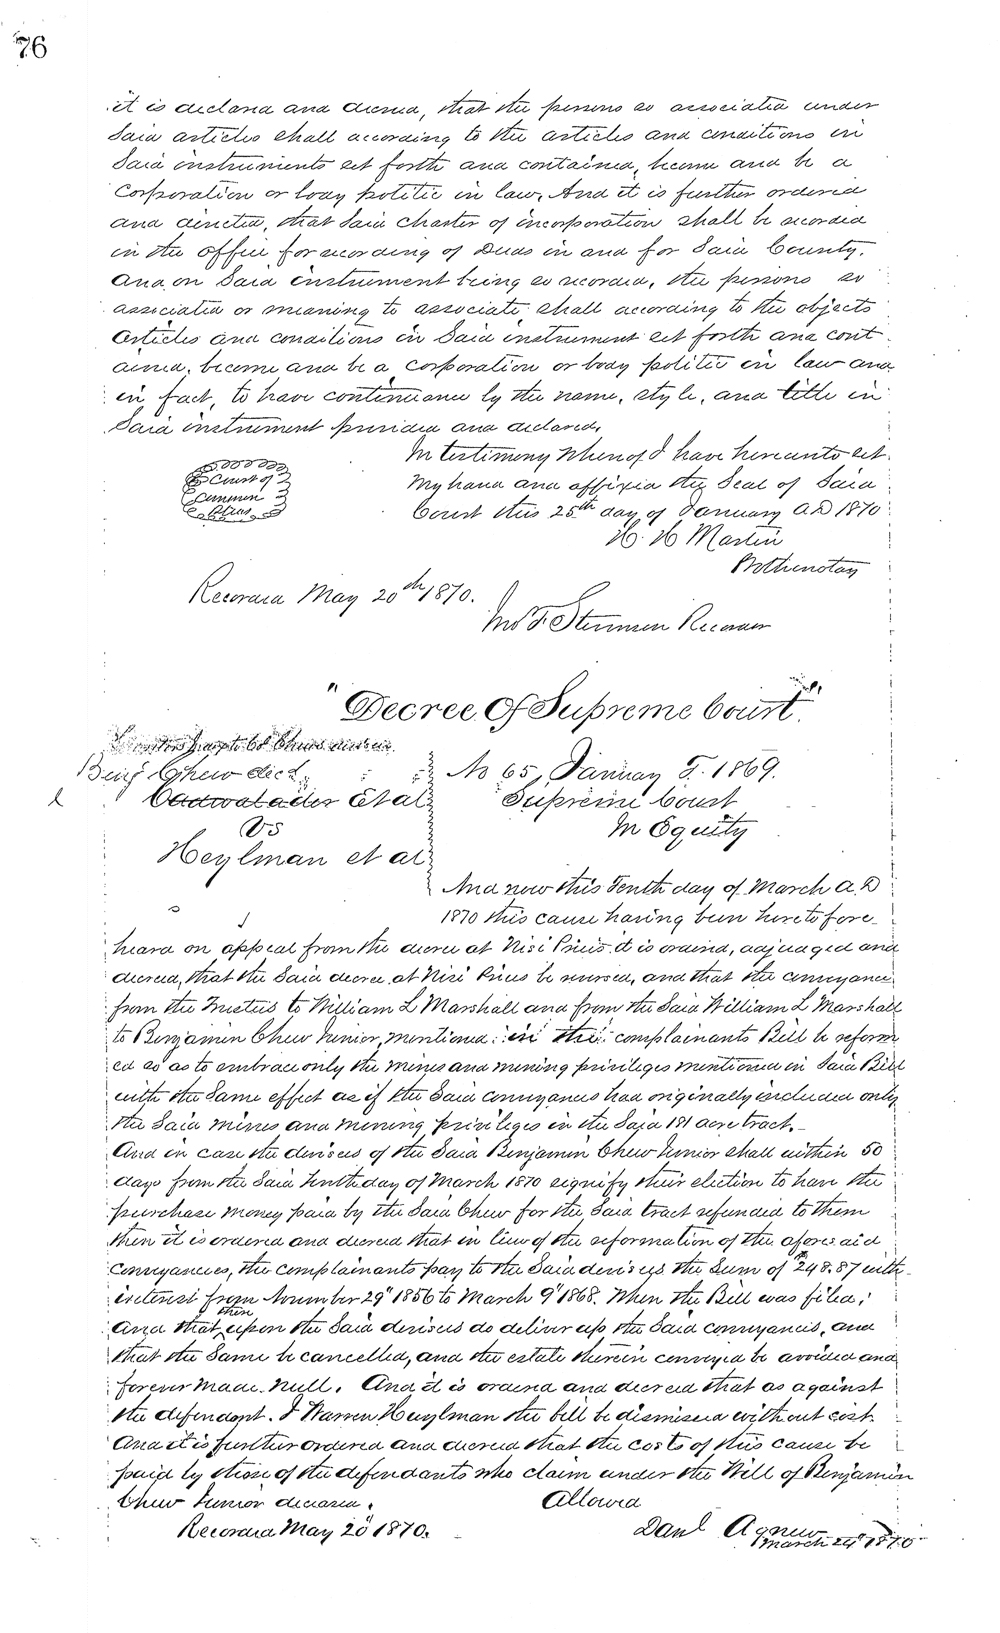 76
it is declared and decreed, that the persons so associated under
Said articles shall according to the articles and conditions in
Said instruments set forth and contained, become and be a
Corporation or body politic in law, And it is further ordered
and directed, that said charter of incorporation shall be recorded
in the office for recording of Deeds in and for Said County.
And on Said instrument being so recorded, the persons so
associated or meaning to associate shall according to the objects
articles and conditions in Said instrument set forth and cont
ained, become and be a corporation or body politic in law and
in fact, to have continuance by the name, style, and title in
Said instrument provided and declared,
In testimony whereof I have hereunto set
my hand and affixed the Seal of Said
Court this 25th day of January A.D 1870
Court of
Common
Pleas
H. H Martin
Prothonotary
Recorded May 20th 1870.
Jno F. Stevenson Recorder
"Decree Of Supreme Court"
Benj Chew decd
Cadwalader Et al
Vs
Heylman et al
No 65, January T. 1869.
Supreme Court
In Equity
And now this Tenth day of March A.D
1870 this cause having been heretofore
heard on appeal from the decree at Nisi Prius it is ordered, adjudged and
decreed, that the Said decree at Nisi Prius be reversed, and that the conveyance
from the Trustees to William L Marshall and from the Said William L Marshall
to Benjamin Chew Junior, mentioned in the complainants Bill be reform
ed so as to embrace only the mines and mining privileges mentioned in Said Bill
with the Same effect as if the Said conveyances had originally included only
the Said mines and mining privileges in the Said 181 acre tract.
And in case the devisees of the Said Benjamin Chew Junior shall within 50
days from the Said tenth day of March 1870 signify their election to have the
purchase money paid by the Said Chew for the Said tract refunded to them
then it is ordered and decreed that in lieu of the reformation of the aforesaid
conveyances, the complainants pay to the Said devisees the Sum of $248.87 with
interest from November 29" 1856 to March 9" 1868. When the Bill was filed;
And that then upon the Said devisees do deliver up the Said conveyances, and
that the Same be cancelled, and the estate therein conveyed be avoided and
forever made null. And it is ordered and decreed that as against
the defendant J Warren Heylman the bill be dismissed without cost
And it is further ordered and decreed that the costs of this cause be
paid by those of the defendants who claim under the Will of Benjamin
Chew Junior deceased.
Allowed
Recorded May 20" 1870.
Danl Agnew
March 24" 1870